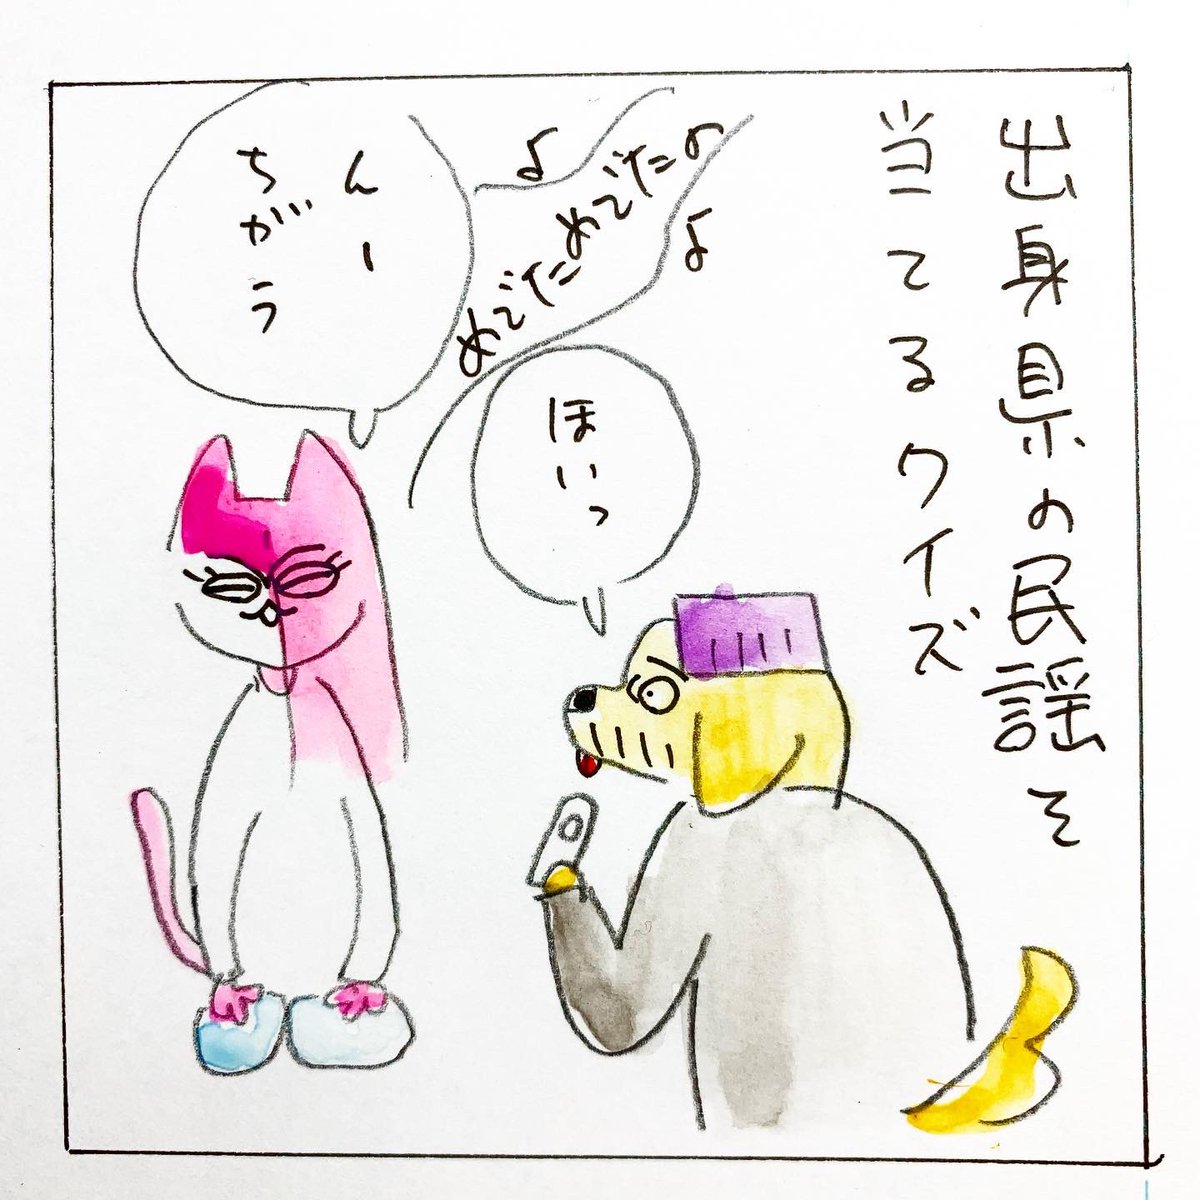 出身県の民謡を
当てるクイズ
めでためでたの
ほいっ
んー
ちがう